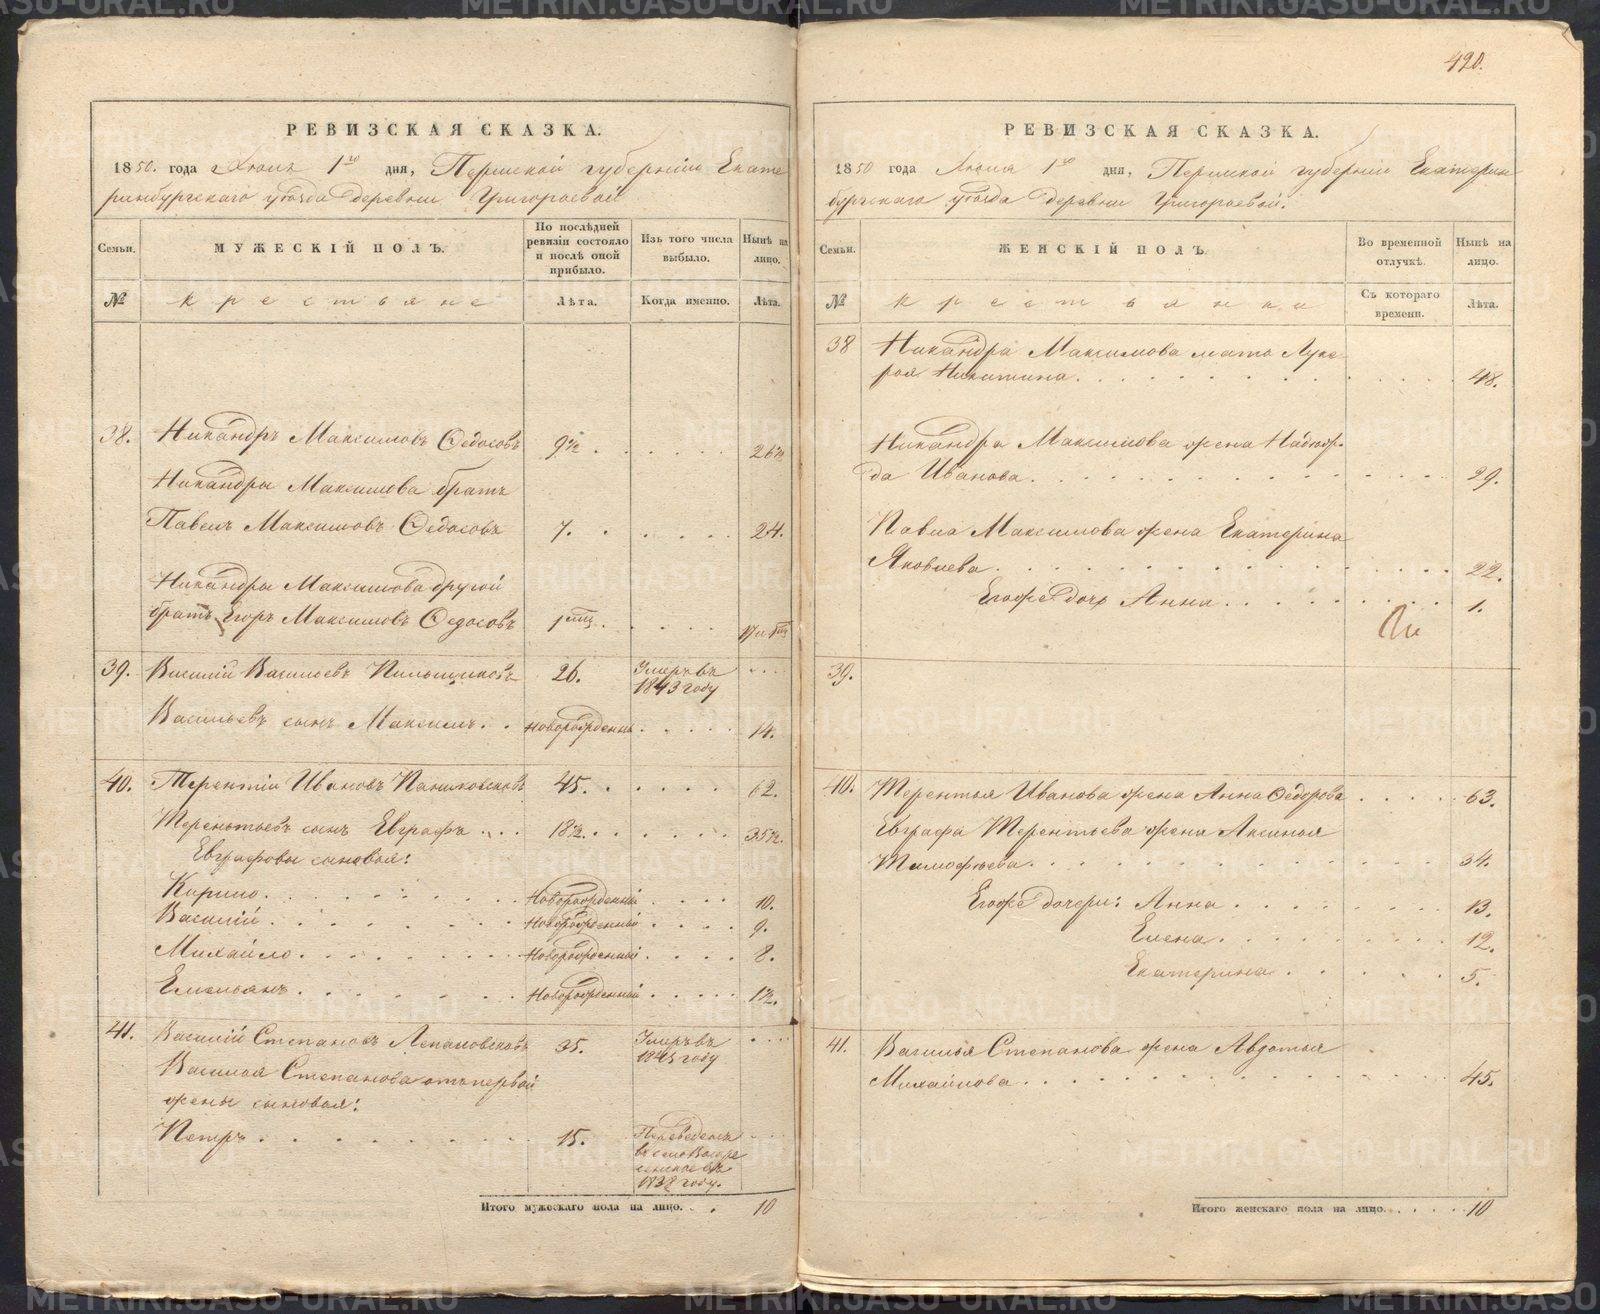 РЕВИЗСКАЯ СКАЗКА.
1850. года Июля 1го дня, Пермской губерніи Екате
ринбургскаго уѣзда деревни Григорьевой
Семьи.
МУЖЕСКІЙ ПОЛЪ.
По послѣдней ревизіи состояло и послѣ оной прибыло.
Изъ того числа выбыло.
Нынѣ на лицо.
№
крестьяне
Лѣта.
Когда именно.
Лѣта.
38. Никандръ Максимовъ Ѳедосовъ 9½ 26½
Никандры Максимова братъ
Павелъ Максимовъ Ѳедосовъ 7. 24.
Никандры Максимова другой
братъ Егоръ Максимовъ Ѳедосовъ
39. Василій Васильевъ 26. Умеръ въ
1843 году
Васильевъ сынъ Максимъ новорожденный 14.
40. Терентій Ивановъ 45. 62.
Терентьевъ сынъ Евграфъ 18½. 35½.
Евграфовы сыновья:
Кирило новорожденный 10.
Василій новорожденный 9.
Михайло новорожденный 8.
Емельянъ новорожденный 1½.
41. Василій Степановъ 35. Умеръ въ
1845 году
Василья Степанова отъ первой
жены сыновья:
Петръ 15. Переведенъ
въ село
въ
году.
Итого мужескаго пола на лицо. 10
420.
РЕВИЗСКАЯ СКАЗКА.
1850 года Июля 1го дня, Пермской губерніи Екатерин
бургскаго уѣзда деревни Григорьевой.
Семьи.
ЖЕНСКІЙ ПОЛЪ.
Во временной отлучкѣ.
Нынѣ на лицо.
№
крестьянки
Съ котораго времени.
Лѣта.
38 Никандра Максимова мать Луке
рья Никитина 48.
Никандры Максимова жена Надеж
да Иванова 29.
Павла Максимова жена Екатерина
Яковлева 22.
Егоже дочь Анна 1.
39.
40. Терентья Иванова жена Анна Ѳедорова 63.
Евграфа Терентьева жена Аксинья
Тимофѣева 34.
Егоже дочери: Анна 13.
Елена 12.
Екатерина 5.
41. Василья Степанова жена Авдотья
Михайлова 45.
Итого женскаго пола на лицо. 10
METRIKI.GASO-URAL.RU